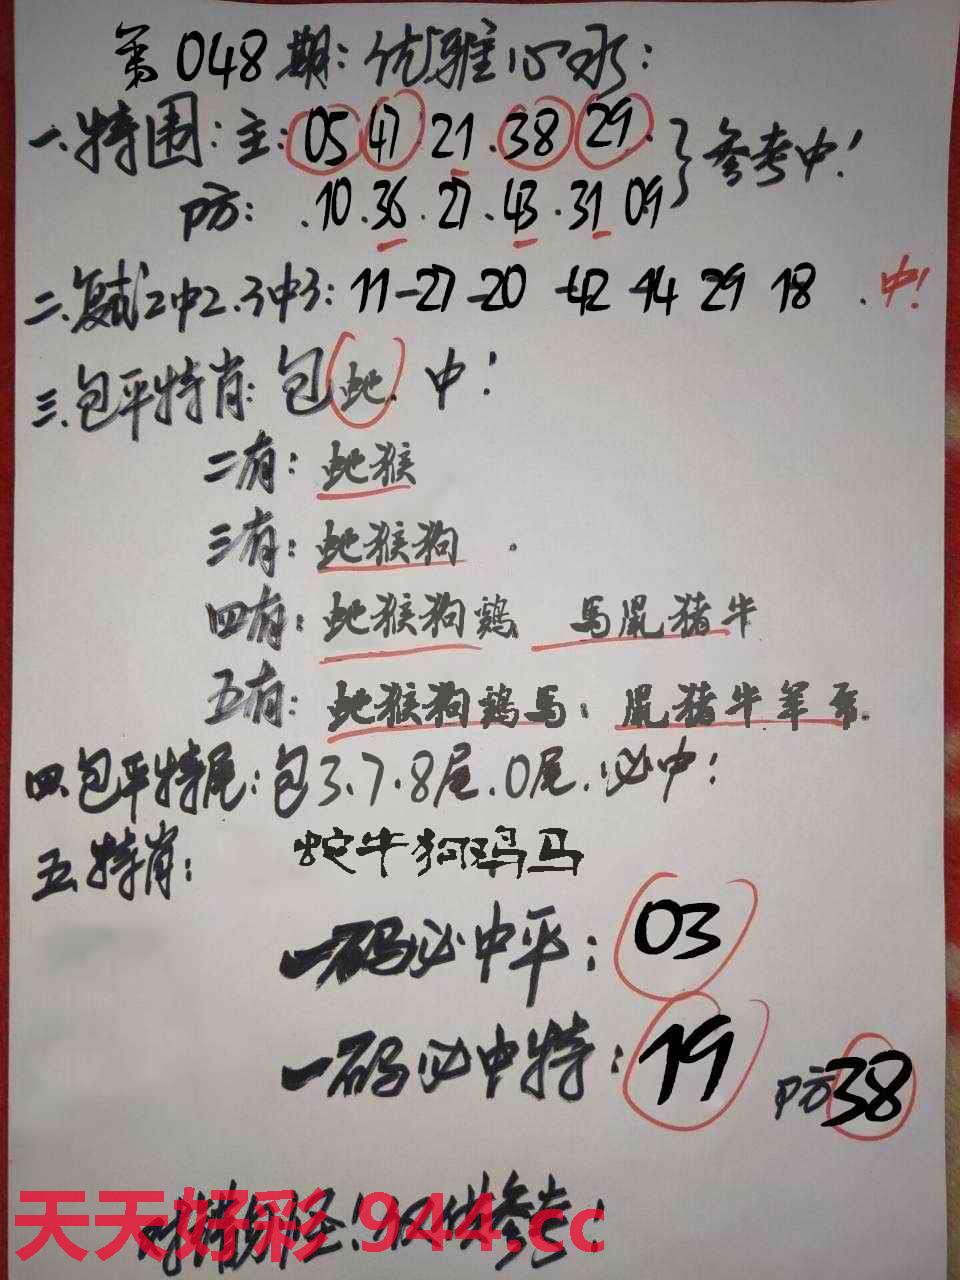 第048期:优雅心水:
一.特围:主:05 47 21.38 29.}参考中!
防:.10.36.27.43.31 09
二.复试2中2.3中3:11-27-20-42 14 29 18.中!
三.包平特肖:包蛇.中!
二有:蛇猴
三有:蛇猴狗.
四有:蛇猴狗鷄 馬鼠猪牛
五有:蛇猴狗鷄馬:鼠猪牛羊
四.包平特尾:包3.7.8尾.0尾.必中:
五.特肖:蛇牛狗鸡马
一码必中平:03
一码必中特:19 防38
对错勿怪!仅供参考!
天天好彩.944.cc